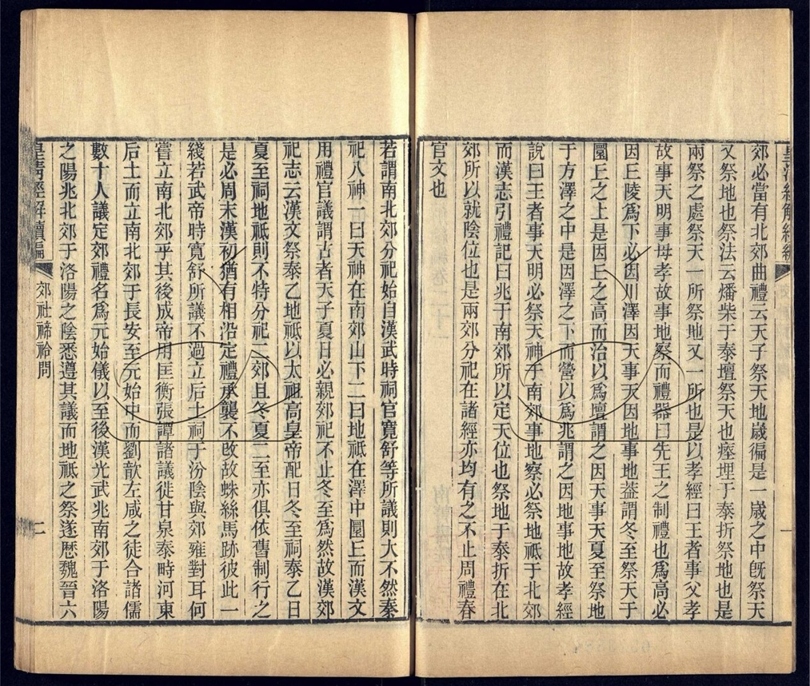 皇清經解續編
郊必當有北郊曲禮云天子祭天地歲徧是一歲之中旣祭天
又祭地也祭法云燔柴于泰壇祭天也瘞埋于泰折祭地也是
兩祭之處祭天一所祭地又一所也是以孝經曰王者事父孝
故事天明事母孝故事地察而禮器曰先王之制禮也爲高必
因丘陵爲下必因川澤因天事天因地事地葢謂冬至祭天于
圜丘之上是因丘之高而治以爲壇謂之因天事天夏至祭地
于方澤之中是因澤之下而營以爲兆謂之因地事地故孝經
說曰王者事天明必祭天神于南郊事地察必祭地祇于北郊
而漢志引禮記曰兆于南郊所以定天位也祭地于泰折在北
郊所以就陰位也是兩郊分祀在諸經亦均有之不止周禮春
官文也
若謂南北郊分祀始自漢武時祠官寬舒等所議則大不然秦
祀八神一曰天神在南郊山下二曰地祇在澤中圜丘而漢文
用禮官議謂古者天子夏日必親郊祀不止冬至爲然故漢郊
祀志云漢文祭泰乙地祇以太祖高皇帝配日冬至祠泰乙日
夏至祠地祇則不特分祀二郊且冬夏二至亦俱依舊制行之
是必周末漢初猶有相沿定禮承襲不改故蛛絲馬跡彼此一
綫若武帝時寬舒所議不過立后土祠于汾陰與郊雍對耳何
嘗立南北郊乎其後成帝用匡衡張譚諸議徙甘泉泰畤河東
后土而立南北郊于長安至元始中而劉歆左咸之徒合諸儒
數十人議定郊禮名爲元始儀以至後漢光武兆南郊于洛陽
之陽兆北郊于洛陽之陰悉遵其議而地祇之祭遂歷魏晉六
皇清經解續編
郊社禘祫問
二